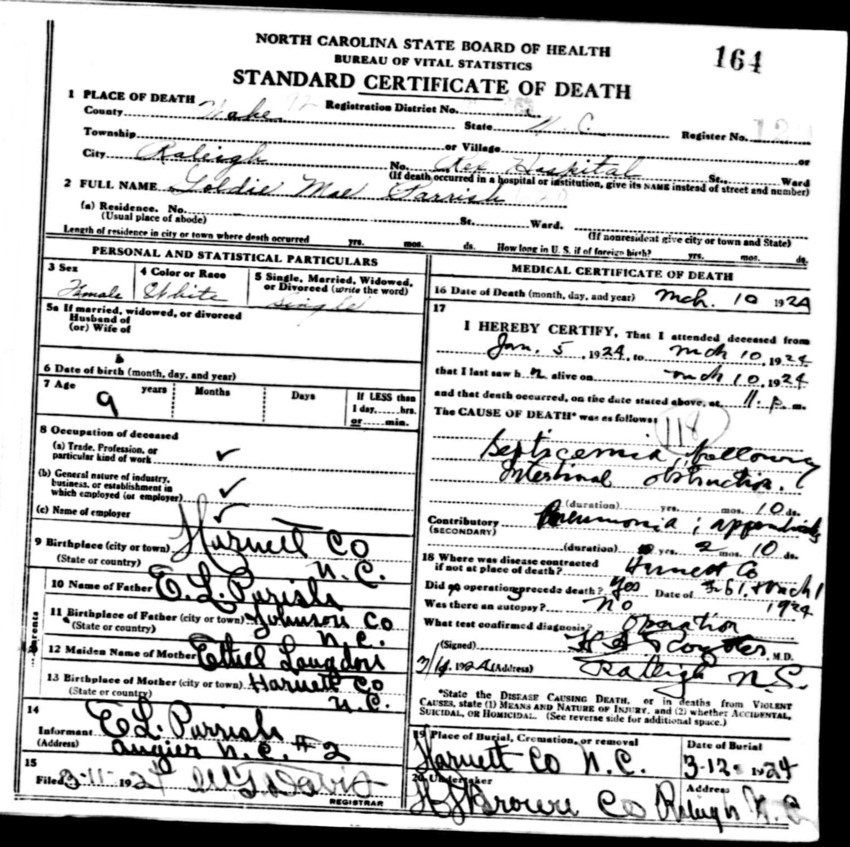 164
NORTH CAROLINA STATE BOARD OF HEALTH
BUREAU OF VITAL STATISTICS
STANDARD CERTIFICATE OF DEATH
1 PLACE OF DEATH
Registration District No.
County Wake State N. C. Register No.
Township or Village or
City Raleigh No. Rex Hospital St., Ward
(If death occurred in a hospital or institution, give its NAME instead of street and number)
2 FULL NAME Goldie Mae Parrish
(a) Residence. No. St. Ward.
(Usual place of abode) (If nonresident give city or town and State)
Length of residence in city or town where death occurred yrs. mos. ds. How long in U. S. if of foreign birth? yrs. mos. ds.
PERSONAL AND STATISTICAL PARTICULARS
3 Sex
Female
4 Color or Race
White
5 Single, Married, Widowed,
or Divorced (write the word)
single
5a If married, widowed, or divorced
Husband of
(or) Wife of
6 Date of birth (month, day, and year)
7 Age
9 years Months Days If LESS than
1 day, hrs.
or min.
8 Occupation of deceased
(a) Trade, Profession, or
particular kind of work ✓
(b) General nature of industry,
business, or establishment in
which employed (or employer) ✓
(c) Name of employer ✓
9 Birthplace (city or town) Harnett Co
(State or country) N. C.
Parents
10 Name of Father E. L. Parrish
11 Birthplace of Father (city or town) Johnson Co
(State or country) N. C.
12 Maiden Name of Mother Ethel Langdon
13 Birthplace of Mother (city or town) Harnett Co
(State or country) N. C.
14
Informant E L Parrish
(Address) Angier N. C. # 2
15
Filed 3-11-1924 Davis
REGISTRAR
MEDICAL CERTIFICATE OF DEATH
16 Date of Death (month, day, and year) Mch. 10 1924
17
I HEREBY CERTIFY, That I attended deceased from
Jan. 5, 1924, to Mch 10, 1924
that I last saw h alive on Mch 10, 1924
and that death occurred, on the date stated above, at 11. p. m.
The CAUSE OF DEATH* was as follows:
118
Septicemia, following
Intestinal obstruction.
(duration) yrs. mos. 10 ds.
Contributory Pneumonia; appendicitis
(SECONDARY)
(duration) yrs. 2 mos. 10 ds.
18 Where was disease contracted
if not at place of death? Harnett Co
Did operations precede death? Yes Date of March 1
1924
Was there an autopsy? No
What test confirmed diagnosis? Operation
(Signed) M.D.
1924 (Address) Raleigh N. C.
*State the DISEASE CAUSING DEATH, or in deaths from VIOLENT
CAUSES, state (1) MEANS AND NATURE OF INJURY, and (2) whether ACCIDENTAL,
SUICIDAL, or HOMICIDAL. (See reverse side for additional space.)
19 Place of Burial, Cremation, or removal
Harnett Co N. C.
Date of Burial
3-12-1924
20 Undertaker
Brown Co
Address
Raleigh N. C